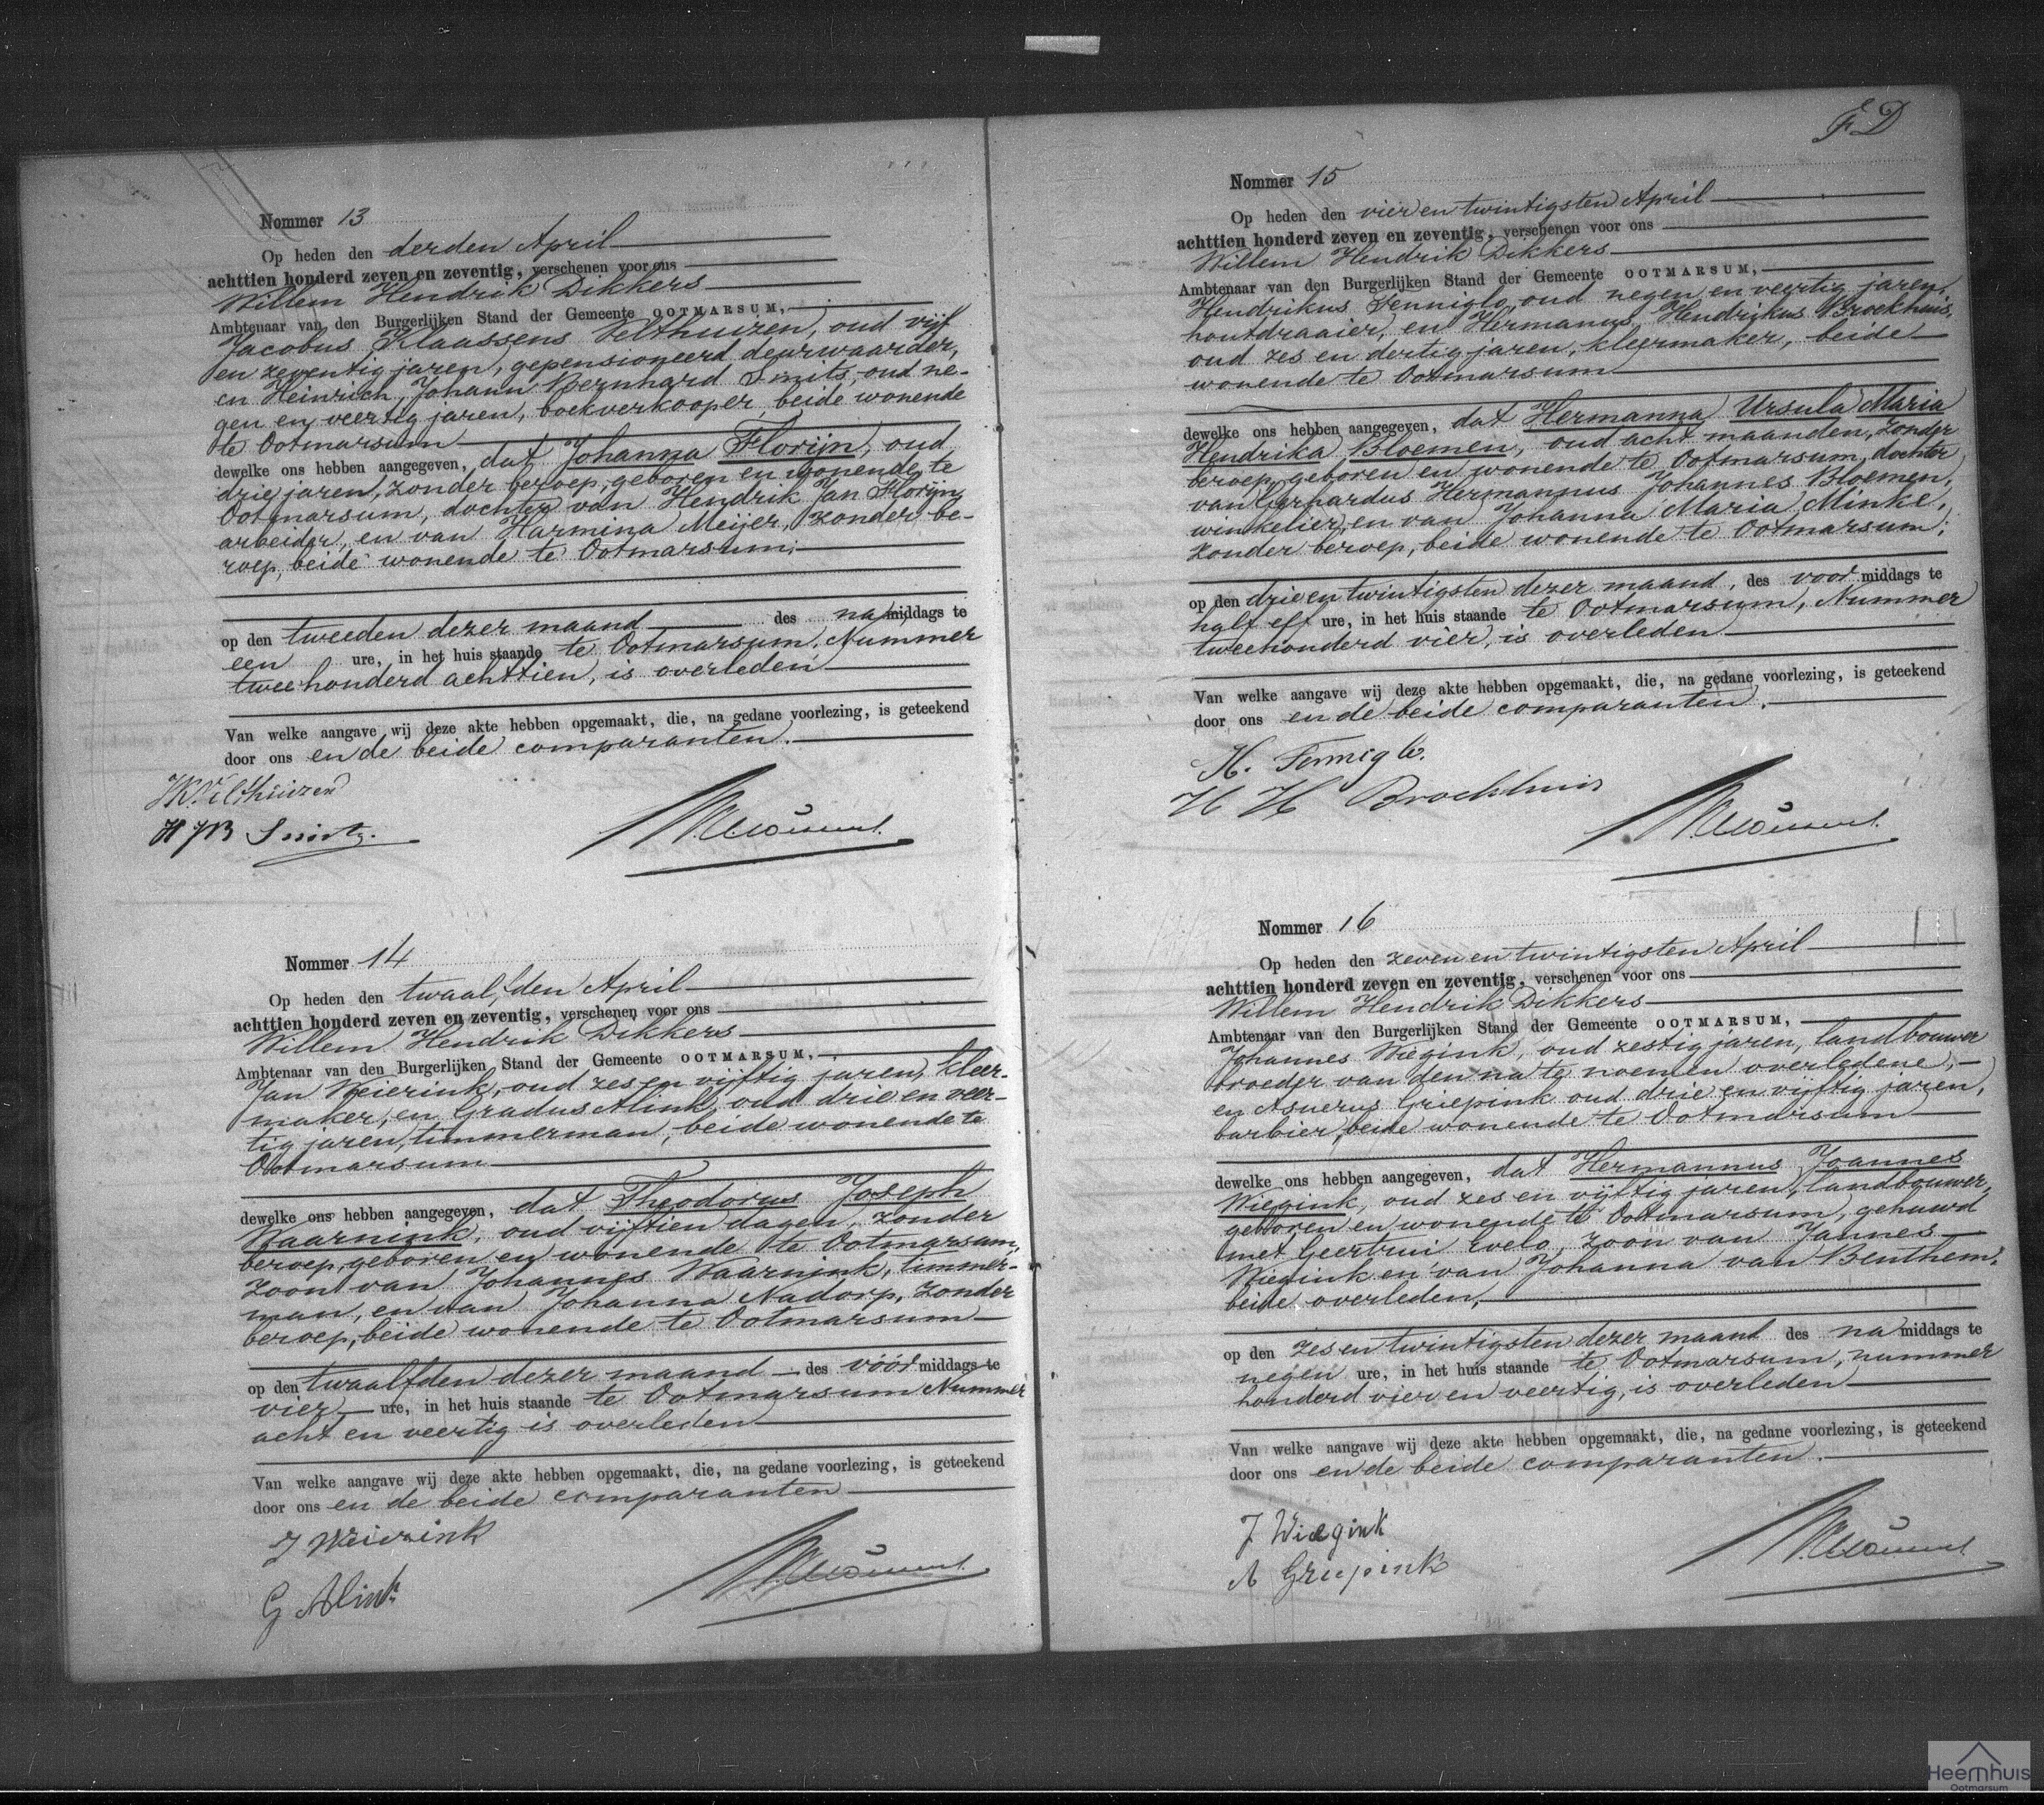 Nommer 13
Op heden den derden April
achttien honderd zeven en zeventig, verschenen voor ons
Willem Hendrik Dikkers
Ambtenaar van den Burgerlijken Stand der Gemeente OOTMARSUM,
Jacobus Klaassens Velthuizen, oud vijf
en zeventig jaren, gepensioneerd deurwaarder,
en Heinrich Johann Bernhard Smits, oud ne-
gen en veertig jaren, boekverkooper, beide wonende
te Ootmarsum
dewelke ons hebben aangegeven, dat Johanna Florijn, oud
drie jaren, zonder beroep, geboren en wonende te
Ootmarsum, dochter van Hendrik Jan Florijn,
arbeider, en van Harmina Meijer, zonder be-
roep, beide wonende te Ootmarsum;
op den tweeden dezer maand des na middags te
een ure, in het huis staande te Ootmarsum, Nummer
tweehonderd achttien, is overleden
Van welke aangave wij deze akte hebben opgemaakt, die, na gedane voorlezing, is geteekend
door ons en de beide comparanten.
JK Velthuizen
HJB Smits.
Nommer 14
Op heden den twaalfden April
achttien honderd zeven en zeventig, verschenen voor ons
Willem Hendrik Dikkers
Ambtenaar van den Burgerlijken Stand der Gemeente OOTMARSUM,
Jan Weierink, oud zes en vijftig jaren, kleer-
maker, en Gradus Alink, oud drie en veer-
tig jaren, timmerman, beide wonende te
Ootmarsum
dewelke ons hebben aangegeven, dat Theodorus Joseph
Waarnink, oud vijftien dagen, zonder
beroep, geboren en wonende te Ootmarsum,
zoon van Johannes Waarnink, timmer-
man, en van Johanna Nadorp, zonder
beroep, beide wonende te Ootmarsum
op den twaalfden dezer maand des vóór middags te
vier ure, in het huis staande te Ootmarsum Nummer
acht en veertig is overleden
Van welke aangave wij deze akte hebben opgemaakt, die, na gedane voorlezing, is geteekend
door ons en de beide comparanten
J Weierink
G Alink
FD
Nommer 15
Op heden den vier en twintigsten April
achttien honderd zeven en zeventig, verschenen voor ons
Willem Hendrik Dikkers
Ambtenaar van den Burgerlijken Stand der Gemeente OOTMARSUM,
Hendrikus Fenniglo, oud negen en veertig jaren,
houtdraaier, en Hermanus Hendrikus Broekhuis,
oud zes en dertig jaren, kleermaker, beide
wonende te Ootmarsum
dewelke ons hebben aangegeven, dat Hermanna Ursula Maria
Hendrika Bloemen, oud acht maanden, zonder
beroep, geboren en wonende te Ootmarsum, dochter
van Gerhardus Hermannus Johannes Bloemen,
winkelier, en van Johanna Maria Minke,
zonder beroep, beide wonende te Ootmarsum;
op den drie en twintigsten dezer maand, des voor middags te
half elf ure, in het huis staande te Ootmarsum, Nummer
tweehonderd vier, is overleden
Van welke aangave wij deze akte hebben opgemaakt, die, na gedane voorlezing, is geteekend
door ons en de beide comparanten.
H. Fenniglo.
H H Broekhuis
Nommer 16
Op heden den zeven en twintigsten April
achttien honderd zeven en zeventig, verschenen voor ons
Willem Hendrik Dikkers
Ambtenaar van den Burgerlijken Stand der Gemeente OOTMARSUM,
Johannes Wiegink, oud zestig jaren, landbouwer
broeder van den na te noemen overledene,
en Asuerus Griepink oud drie en vijftig jaren,
barbier, beide wonende te Ootmarsum
dewelke ons hebben aangegeven, dat Hermannus Joannes
Wiegink, oud zes en vijftig jaren, landbouwer,
geboren en wonende te Ootmarsum, gehuwd
met Geertrui Evelo, zoon van Jannes
Wiegink en van Johanna van Benthem,
beide overleden,
op den zes en twintigsten dezer maand des na middags te
negen ure, in het huis staande te Ootmarsum, nummer
honderd vier en veertig, is overleden
Van welke aangave wij deze akte hebben opgemaakt, die, na gedane voorlezing, is geteekend
door ons en de beide comparanten.
J Wiegink
A Griepink
Heemhuis
Ootmarsum